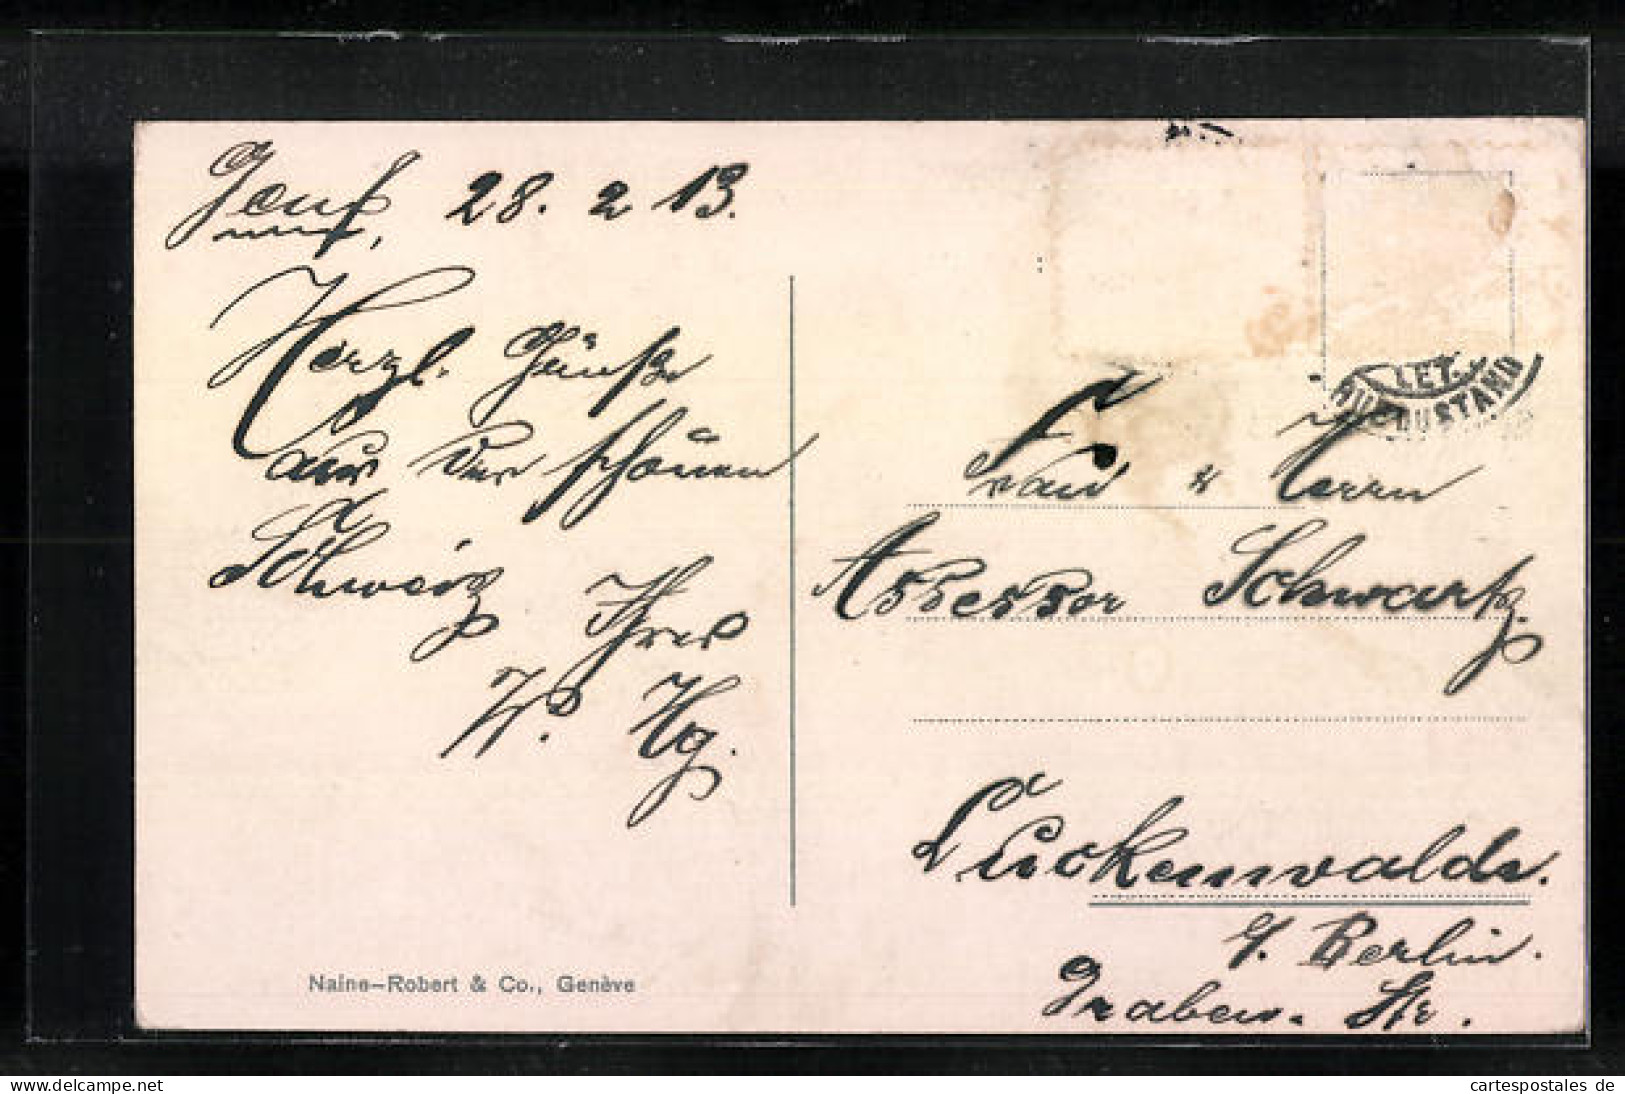 Genf, 28. 2 13.
Herzl. Grüße
aus der schönen
Schweiz
Ihre
Hg.
Frau u Herrn
Assessor Schwartz.
Luckenwalde.
b/. Berlin.
Graben. Str.
LET.
Naine-Robert & Co., Genève
cartespostales de